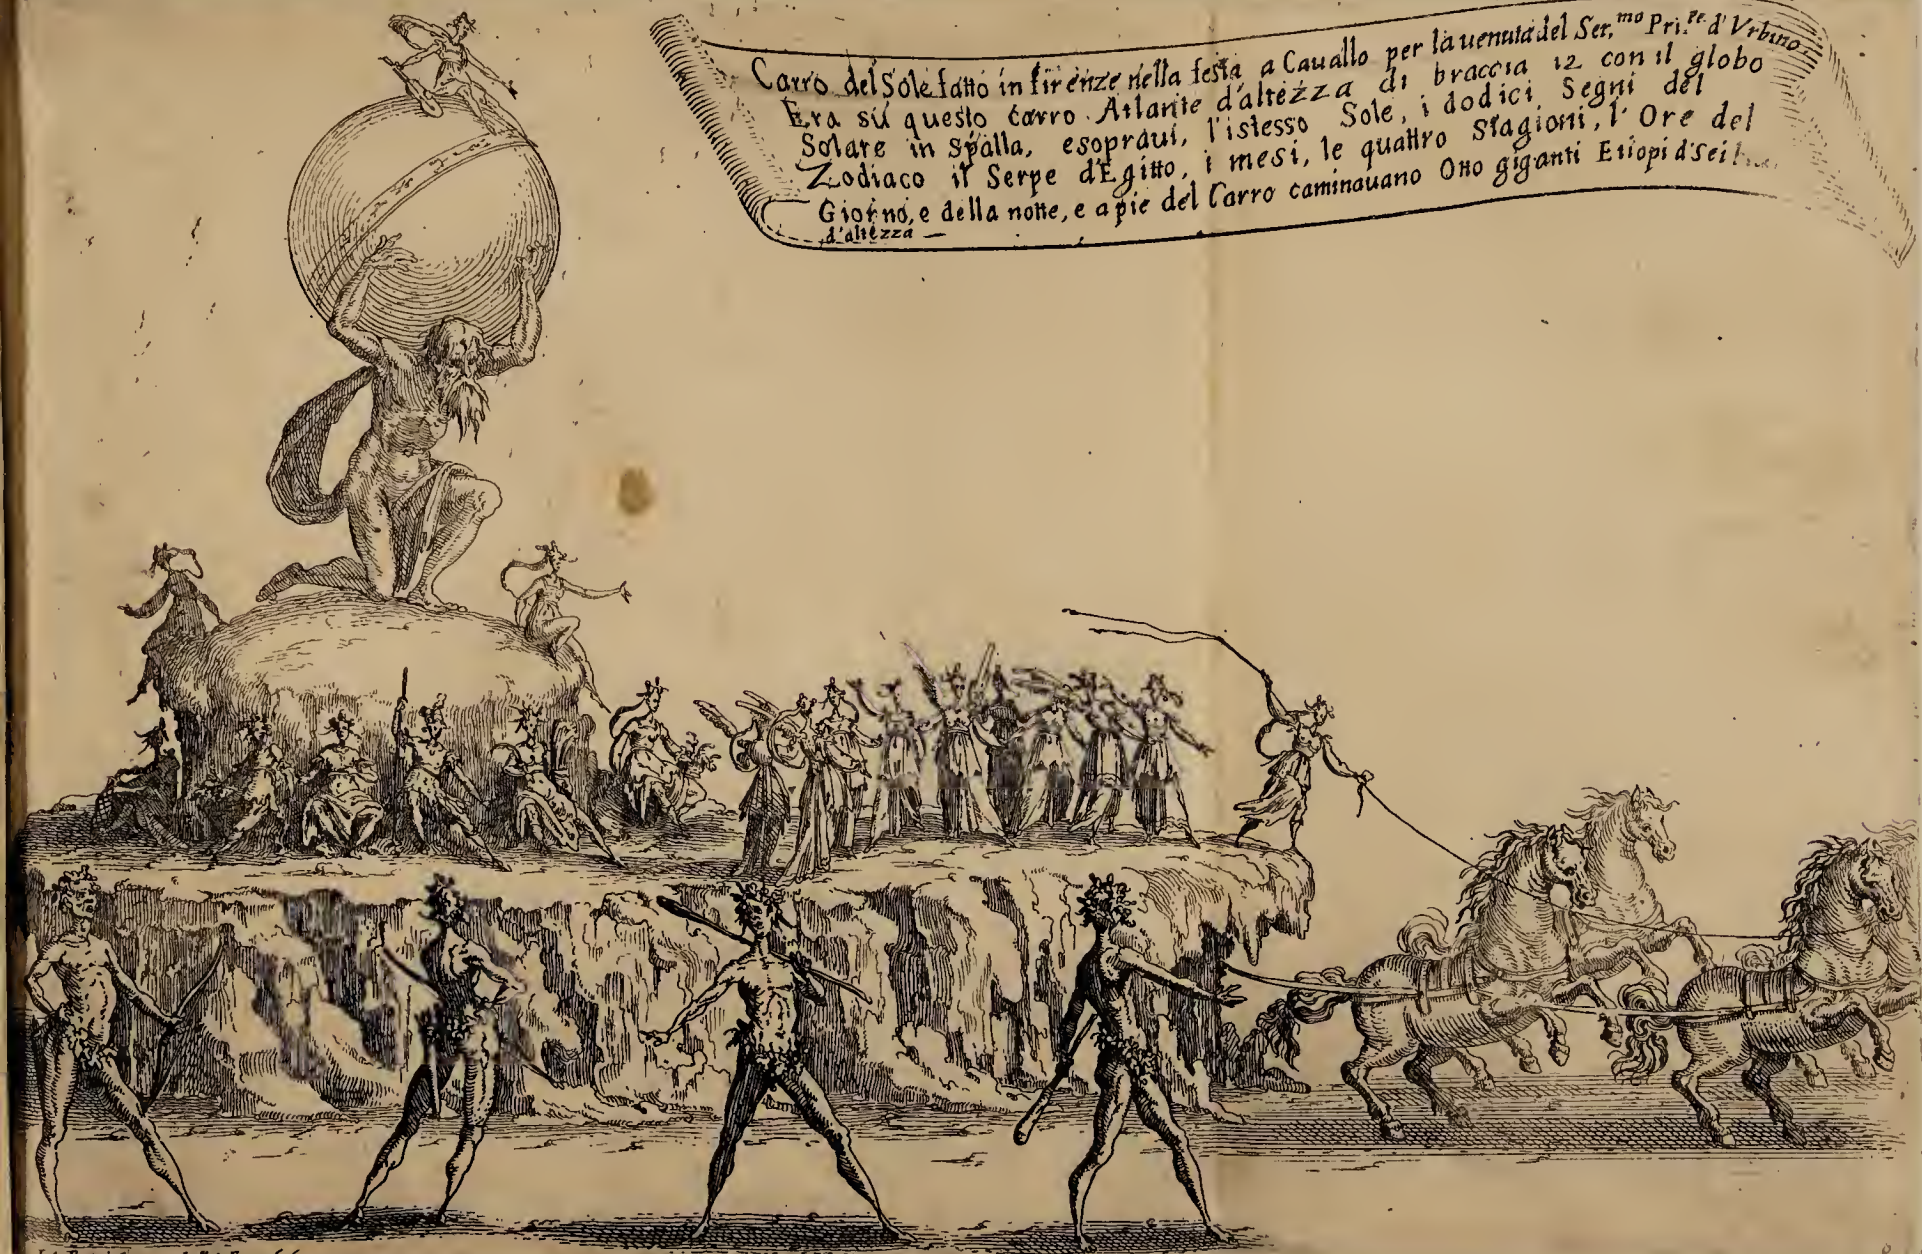 Carro del Sole fatto in firenze nella festa a Cauallo per la uenuta del Ser.mo Pri.pe d'Vrbino.
Era sù questo carro Atlante d'altezza di braccia 12 con il globo
Solare in spalla, e sopraui, l'istesso Sole, i dodici Segni del
Zodiaco il Serpe d'Egitto, i mesi, le quattro Stagioni, l'Ore del
Giorno, e della notte, e a pie del Carro caminauano Otto giganti Etiopi d'Sei
d'altezza